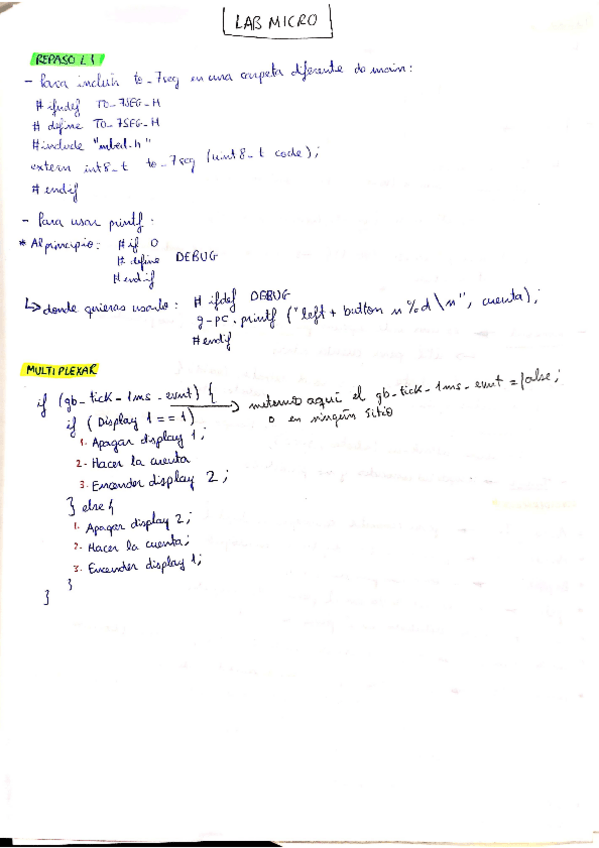 LAB MICRO
REPASO L1
- Para incluir to_7seg en una carpeta diferente do main:
# ifndef TO_7SEG_H
# define TO_7SEG_H
#include "mbed.h"
extern int8_t to_7seg (uint8_t code);
# endif
- Para usar printf:
* Al principio: #if 0
# define DEBUG
# endif
↳ donde quieras usarlo: # ifdef DEBUG
g-pc.printf ("left + button n %d \n", cuenta);
# endif
MULTIPLEXAR
if (gb-tick-1ms-evnt) { → metemos aquí el gb-tick-1ms-evnt = false;
o en ningún sitio
if (Display 1 == 1)
1. Apagar display 1;
2. Hacer la cuenta
3. Encender display 2;
} else {
1. Apagar display 2;
2. Hacer la cuenta;
3. Encender display 1;
}
}